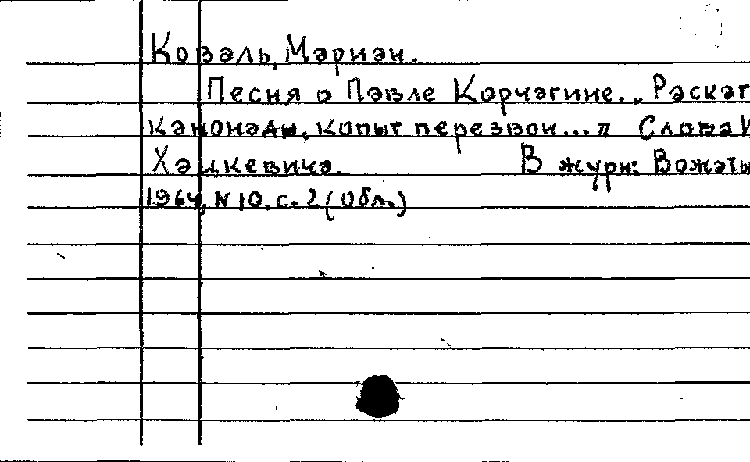 Коваль, Мариан.
Песня о Павле Корчагине.. Раскат
канонады, копыт перезвон..." Слова И
Хашкевича. В журн: Вожаты
1964, N 10. с. 2 (Обл.)